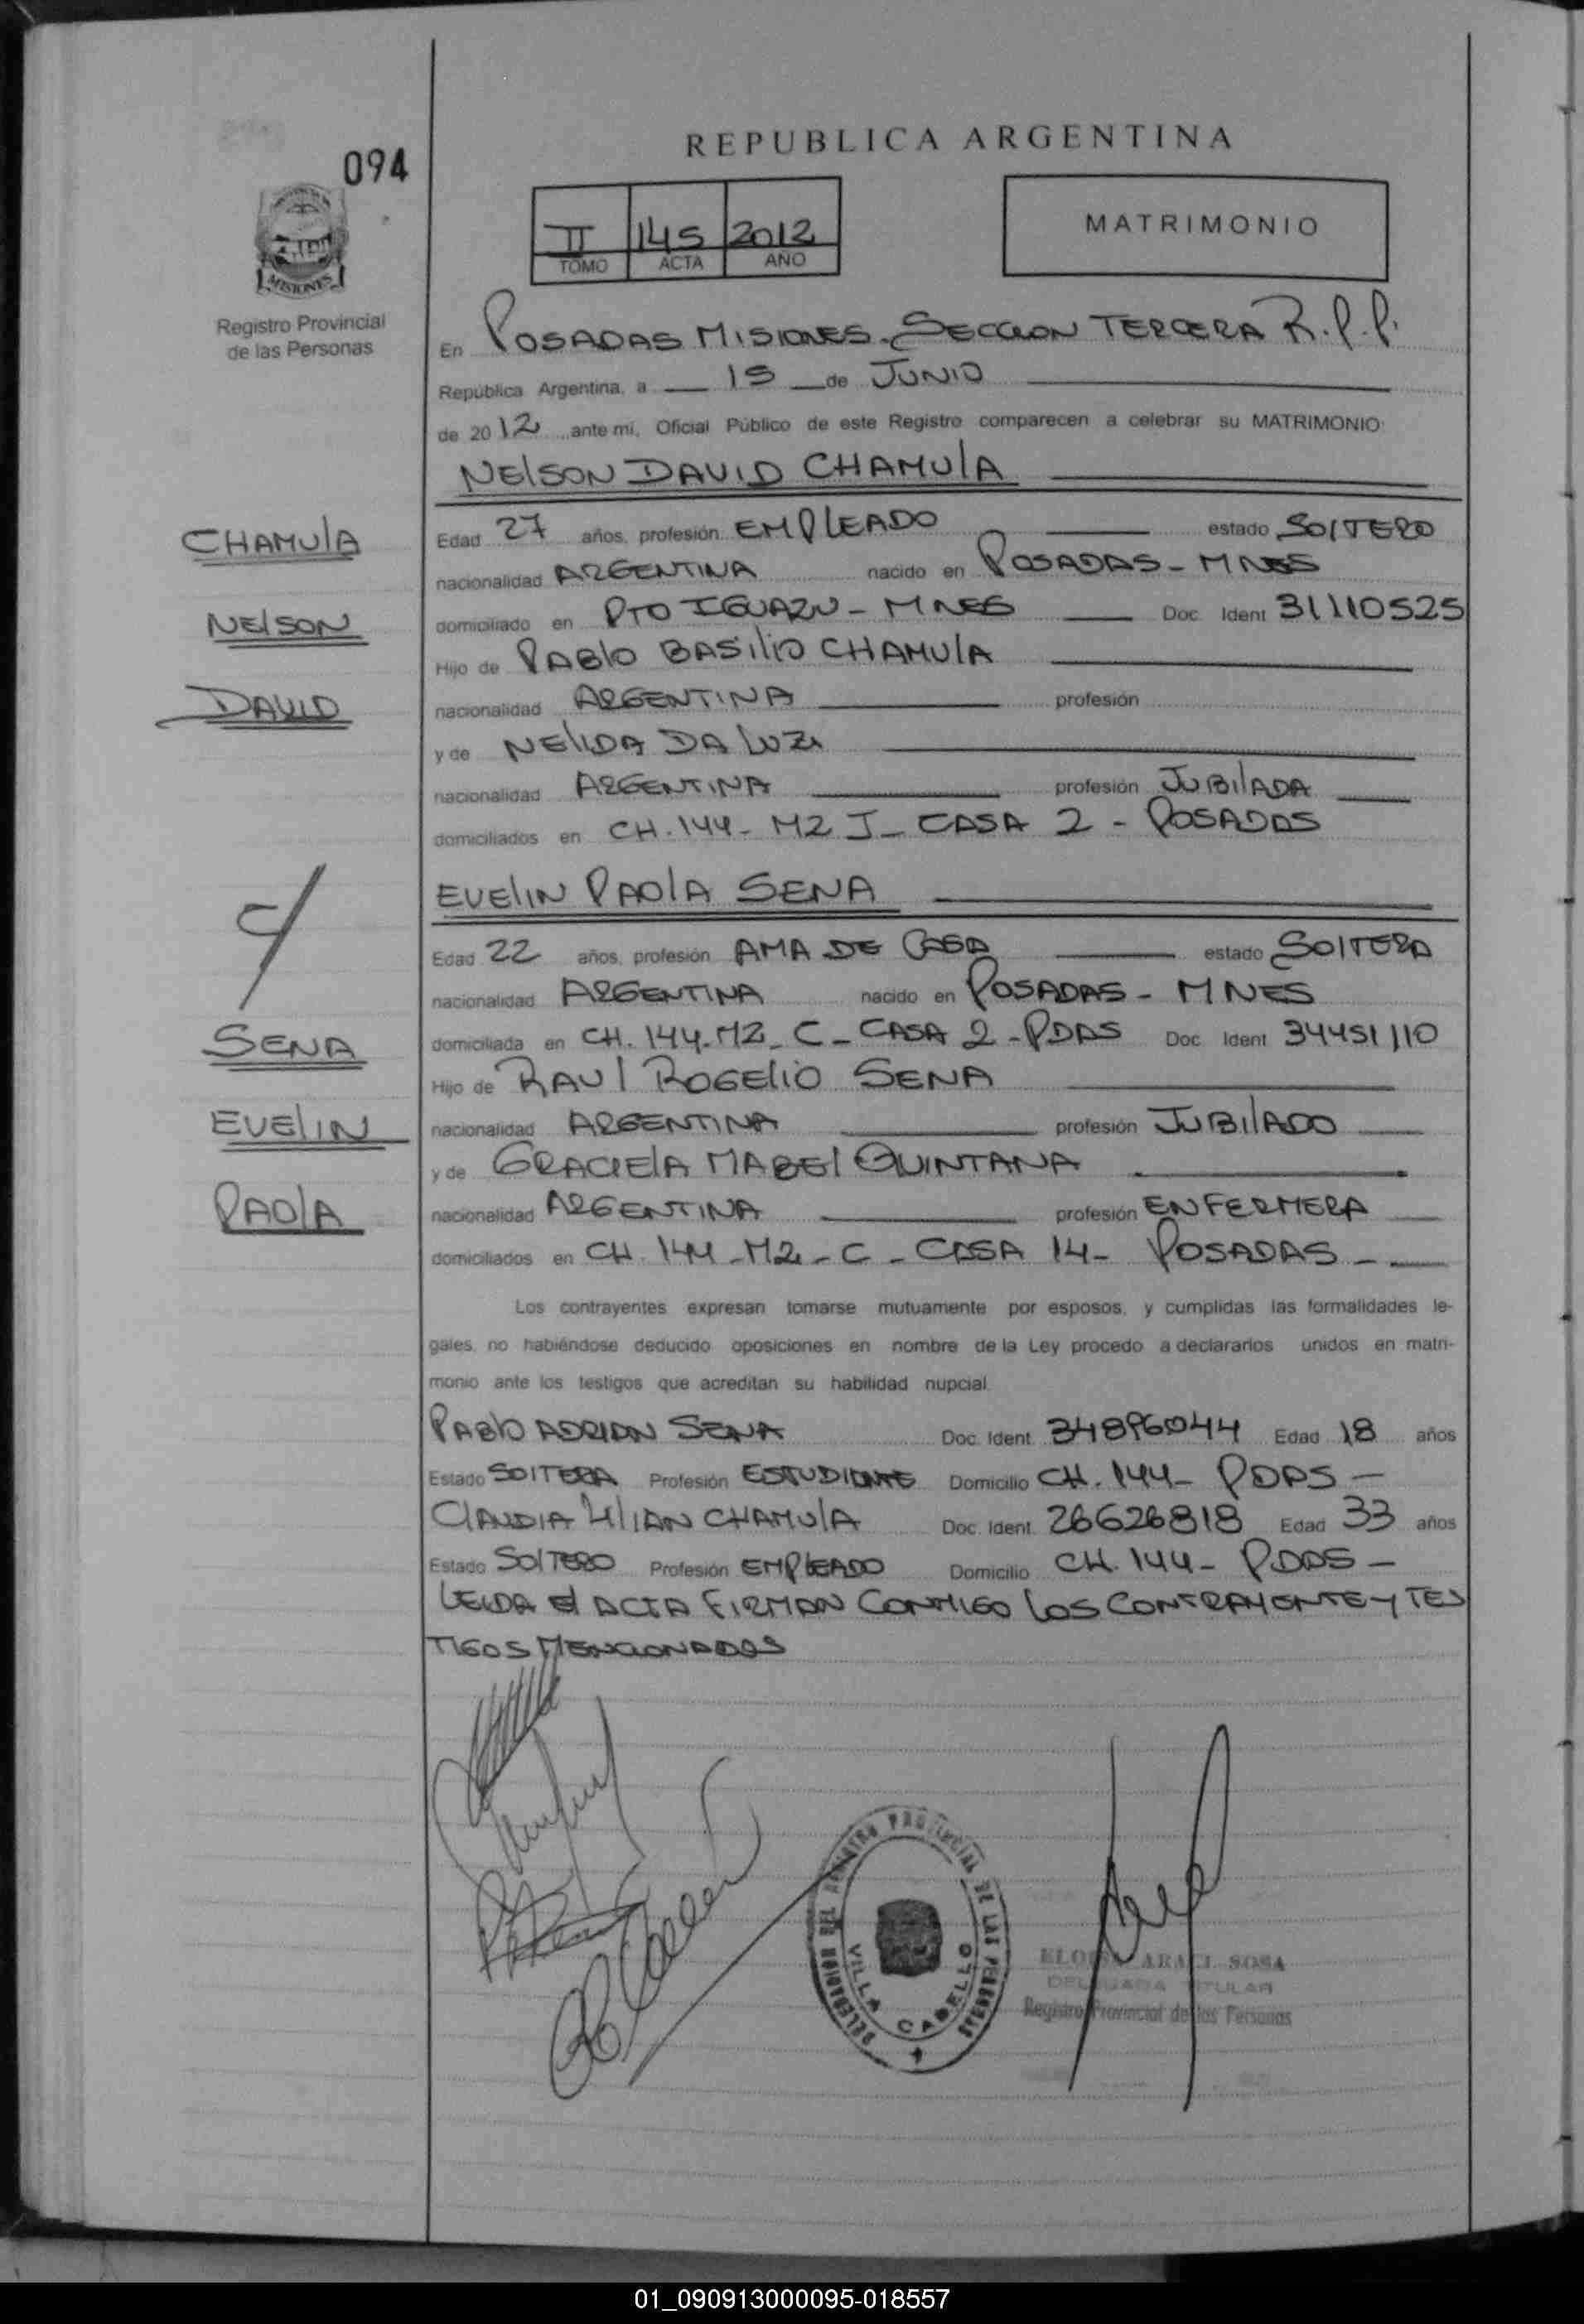 094
REPUBLICA ARGENTINA
II 145 2012
TOMO ACTA AÑO
MATRIMONIO
MISIONES
Registro Provincial
de las Personas
En POSADAS MISIONES. SECCION TERCERA R.P.P.
República Argentina, a 15 de JUNIO
de 2012 ante mi, Oficial Público de este Registro comparecen a celebrar su MATRIMONIO:
NELSON DAVID CHAMULA
CHAMULA
NELSON
DAVID
Edad 27 años, profesión EMPLEADO estado SOLTERO
nacionalidad ARGENTINA nacido en POSADAS - MNES
domiciliado en PTO IGUAZU - MNES Doc. Ident 31110525
Hijo de PABLO BASILIO CHAMULA
nacionalidad ARGENTINA profesión
y de NELIDA DA LUZ
nacionalidad ARGENTINA profesión JUBILADA
domiciliados en CH. 144 - MZ J - CASA 2 - POSADAS
C/
EVELIN PAOLA SENA
SENA
EVELIN
PAOLA
Edad 22 años, profesión AMA DE CASA estado SOLTERA
nacionalidad ARGENTINA nacido en POSADAS - MNES
domiciliada en CH. 144 - MZ - C - CASA 2 - PDAS Doc. Ident 34451110
Hijo de RAUL ROGELIO SENA
nacionalidad ARGENTINA profesión JUBILADO
y de GRACIELA MABEL QUINTANA
nacionalidad ARGENTINA profesión ENFERMERA
domiciliados en CH. 144 - MZ - C - CASA 14 - POSADAS -
Los contrayentes expresan tomarse mutuamente por esposos, y cumplidas las formalidades le-
gales, no habiéndose deducido oposiciones en nombre de la Ley procedo a declararlos unidos en matri-
monio ante los testigos que acreditan su habilidad nupcial.
PABLO ADRIAN SENA Doc. Ident. 34896044 Edad 18 años
Estado SOLTERA Profesión ESTUDIANTE Domicilio CH. 144 - PDAS -
CLAUDIA LILIAN CHAMULA Doc. Ident. 26626818 Edad 33 años
Estado SOLTERO Profesión EMPLEADO Domicilio CH. 144 - PDAS -
LEIDA EL ACTA FIRMAN CONMIGO LOS CONTRAYENTE Y TES
TIGOS MENCIONADOS
DELEGACION DEL REGISTRO PROVINCIAL DE LAS PERSONAS
VILLA CABELLO
ELOISA ARACI SOSA
DELEGADA TITULAR
Registro Provincial de las Personas
01_090913000095-018557